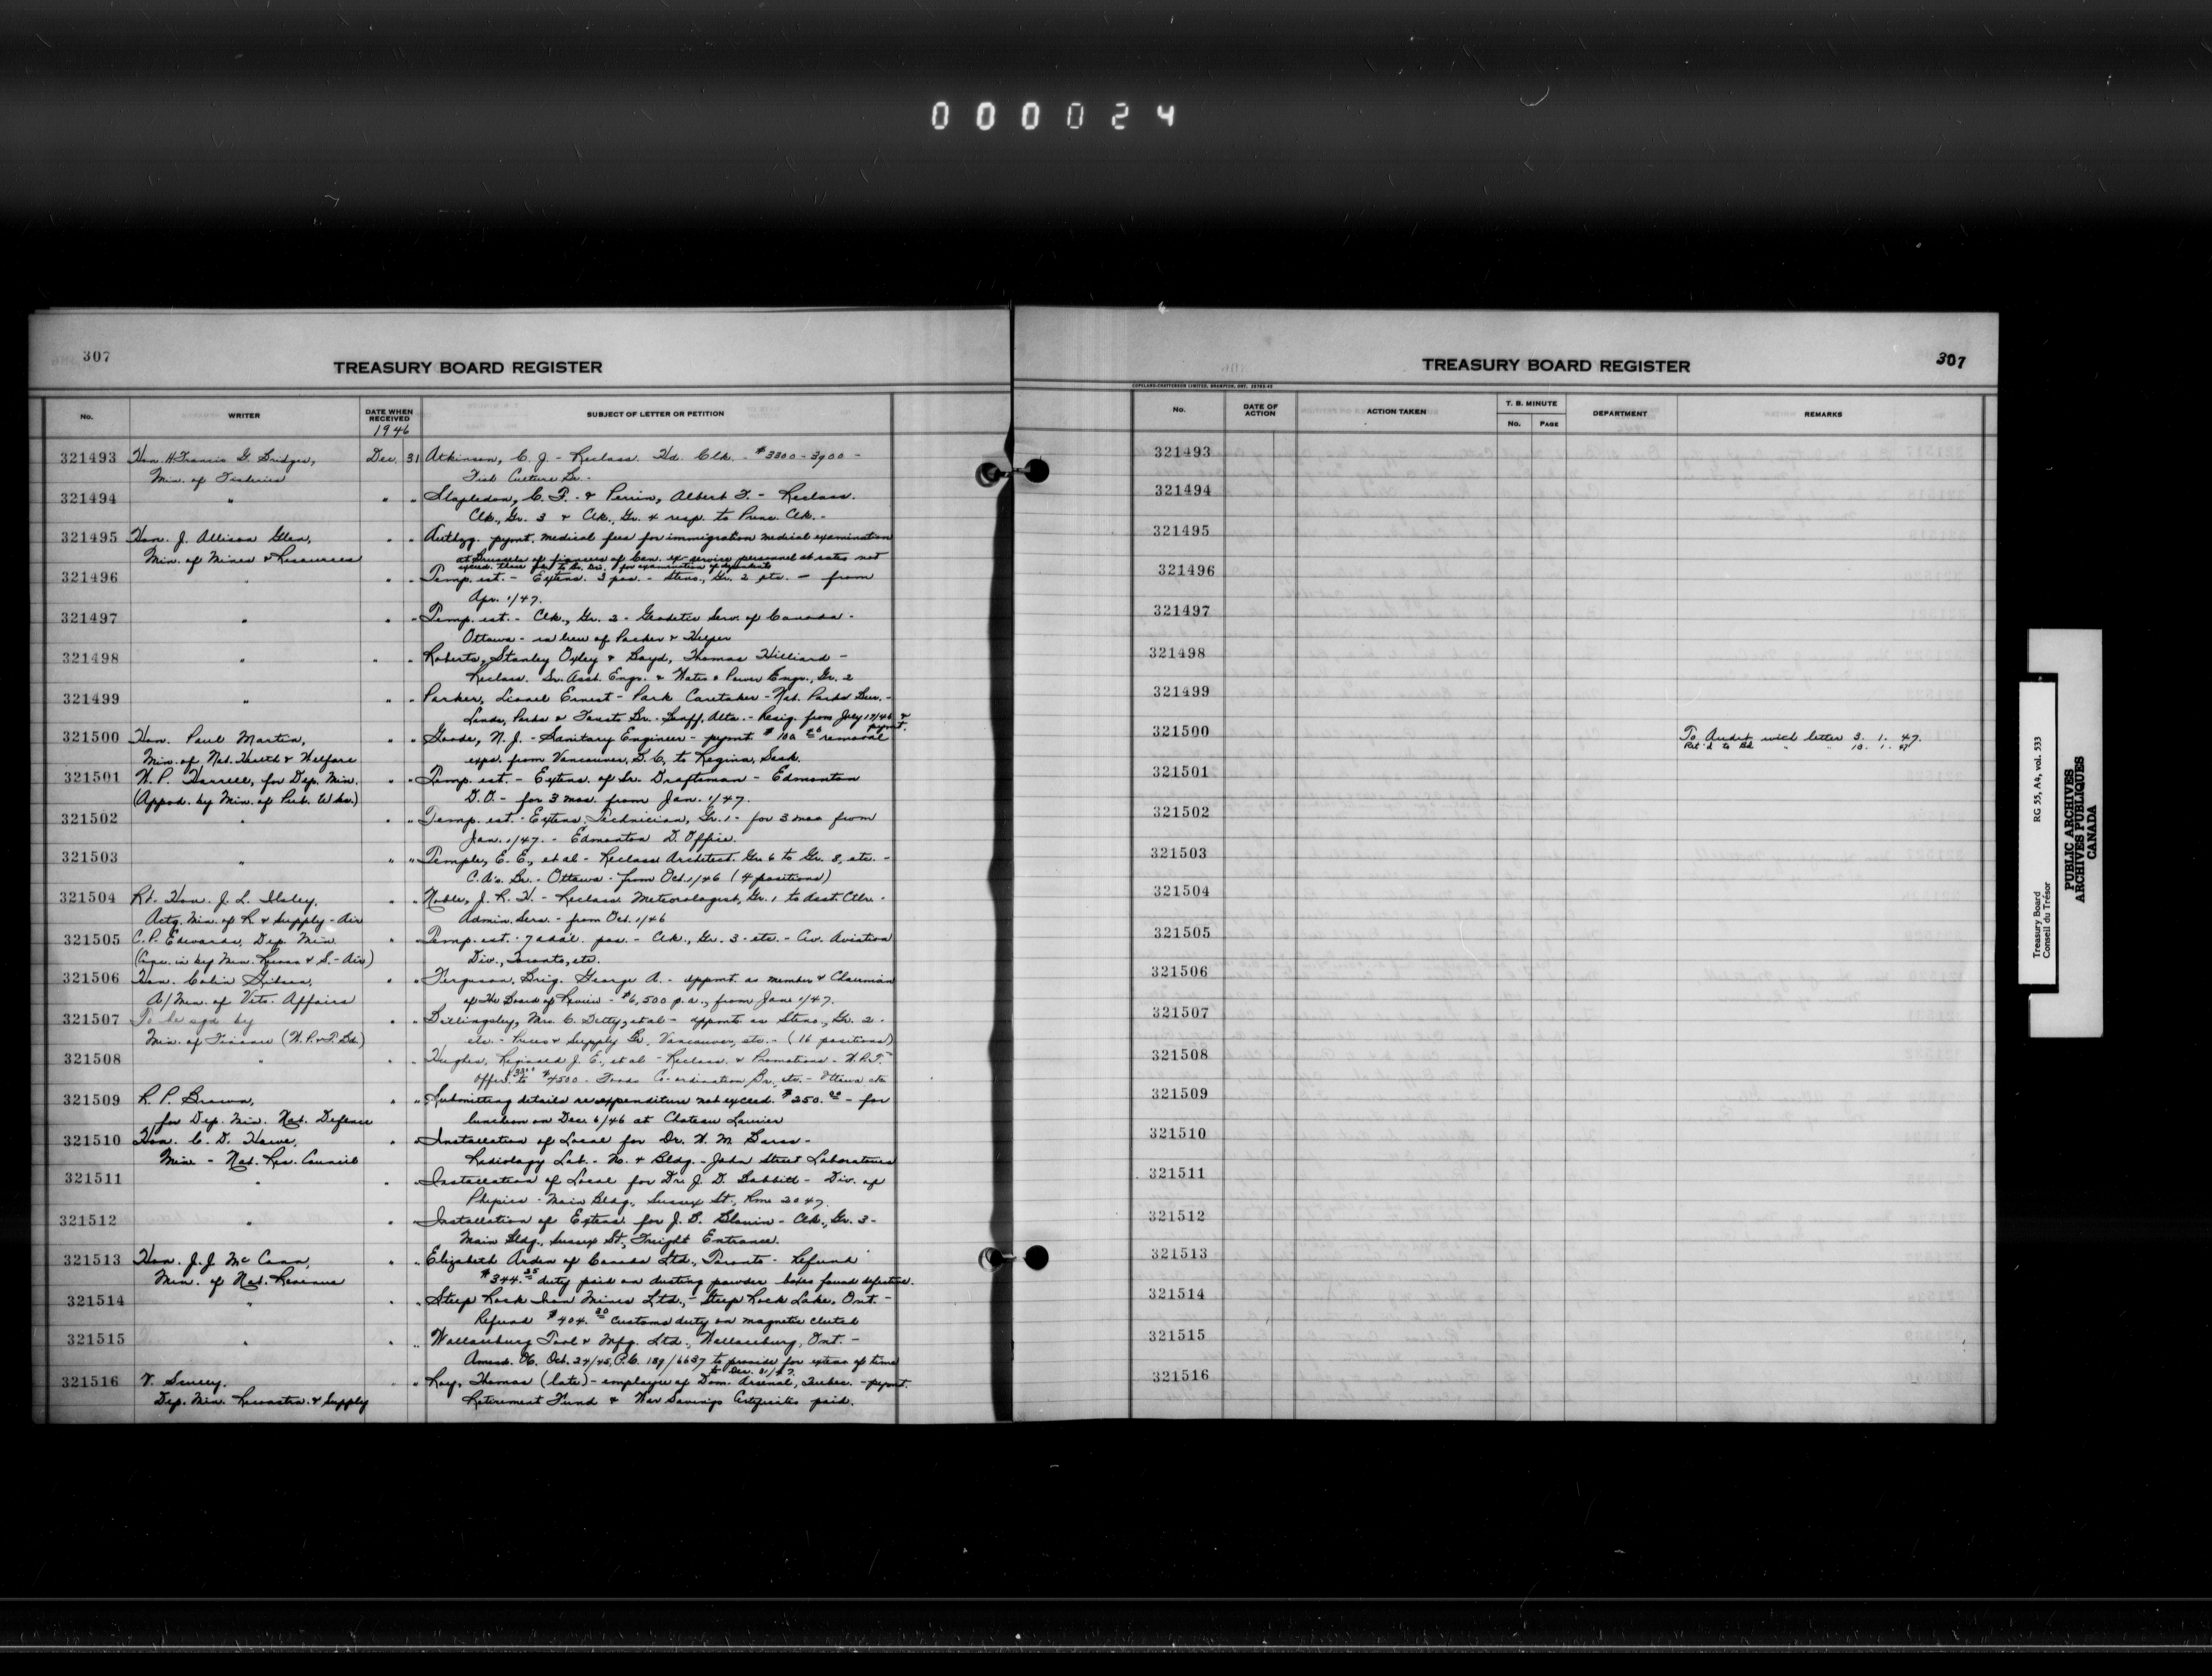 000024
307
TREASURY BOARD REGISTER
No.
WRITER
DATE WHEN RECEIVED
1946
SUBJECT OF LETTER OR PETITION
321493 Hon. H. Francis G. Bridges, Dec. 31 Atkinson, C. J. - Reclass. Hd. Clk. - $3300-3900 -
Min. of Fisheries Fish Culture Br. -
321494 " " " Stapledon, C. F. & Perrin, Albert F. - Reclass.
Clk., Gr. 3 & Clk., Gr. 4 resp. to Princ. Clk. -
321495 Hon. J. Allison Glen, " " Authzg. pymt. medical fees for immigration medical examination
Min. of Mines & Resources at Brussels of fiancees of Can. ex-service personnel at rates not
exceed. those for examination of dependents
321496 " " " Temp. est. - Extens. 3 pos. - Steno., Gr. 2 etc. - from
Apr. 1/47.
321497 " " " Temp. est. - Clk., Gr. 2 - Geodetic Serv. of Canada -
Ottawa - in lieu of Packer & Helper
321498 " " " Roberts, Stanley Oxley & Boyd, Thomas Hilliard -
Reclass. Sr. Asst. Engr. & Water & Power Engr., Gr. 2
321499 " " " Parker, Lionel Ernest - Park Caretaker - Nat. Parks Bur. -
Lands, Parks & Forests Br. - Banff, Alta. - Resig. from July 17/46 & pymt.
321500 Hon. Paul Martin, " " Goode, N. J. - Sanitary Engineer - pymt. removal
Min. of Nat. Health & Welfare exps. from Vancouver, B.C. to Regina, Sask.
321501 W. P. Harrell, for Dep. Min. " " Temp. est. - Extens. of Sr. Draftsman - Edmonton
(Appvd. by Min. of Pub. Wks.) D.O. - for 3 mos. from Jan. 1/47.
321502 " " " Temp. est. - Extens. Technician, Gr. 1 - for 3 mos from
Jan. 1/47. - Edmonton D. Office.
321503 " " " Temple, E. E., et al - Reclass Architect. Gr. 6 to Gr. 8, etc. -
C.A's. Br. - Ottawa - from Oct. 1/46 (4 positions)
321504 Rt. Hon. J. L. Ilsley, " Noble, J. R. H. - Reclass. Meteorologist, Gr. 1 to Asst. Ctlr. -
Actg. Min. of R. & Supply - Air Admin. Serv. - from Oct. 1/46
321505 C. P. Edwards, Dep. Min. " " Temp. est. - 7 addl. pos. - Clk., Gr. 3 - etc. - Civ. Aviation
(Conc. in by Min. Recons & S. - Air) Div., Toronto, etc.
321506 Hon. Colin Gibson, " " Ferguson, Brig. George A. - appmt. as member & Chairman
A/Min. of Vets. Affairs of the Board of Review - $6,500 p.a., from Jan. 1/47.
321507 To be sgd by " " Billingsley, Mrs. C. Betty, et al - appmt. as Steno., Gr. 2 -
Min. of Finance (W.P. & T. Bd.) etc. - Prices & Supply Br., Vancouver, etc. - (16 positions)
321508 " " " Hughes, Reginald J. E., et al - Reclass. & Promotions - W.P.T.
Offcr. 3300 to $4500 - Foods Co-ordination Br., etc. - Ottawa etc
321509 R. P. Brown, " " Submitting details re expenditure not exceed. $250.00 - for
for Dep. Min. Nat. Defence luncheon on Dec. 6/46 at Chateau Laurier
321510 Hon. C. D. Howe, " " Installation of Local for Dr. W. M. -
Min - Nat. Res. Council Radiology Lab. - No. 4 Bldg. - John Street Laboratories
321511 " " " Installation of Local for Dr. J. D. Babbitt - Div. of
Physics - Main Bldg., Sussex St., Rm. 2047.
321512 " " " Installation of Extens. for J. B. - Clk., Gr. 3 -
Main Bldg., Sussex St., Freight Entrance.
321513 Hon. J. J. McCann, " " Elizabeth Arden of Canada Ltd., Toronto - Refund
Min. of Nat. Revenue $344.25 duty paid on dusting powder boxes found defective.
321514 " " " Steep Rock Iron Mines Ltd., - Steep Rock Lake, Ont. -
Refund $404.30 customs duty on magnetic clutch
321515 " " " Wallaceburg Tool & Mfg. Ltd., Wallaceburg, Ont. -
Amend. OC. Oct. 24/45, P.C. 189/6637 to provide for extens of time
to Dec. 31/47.
321516 V. Scully, " " Roy, Thomas (late) - employee of Dom. Arsenal, Quebec. - pymt.
Dep. Min. Reconstn. & Supply Retirement Fund & War Savings Certificates paid.
TREASURY BOARD REGISTER
307
COPELAND-CHATTERSON LIMITED, BRAMPTON, ONT.
No.
DATE OF ACTION
ACTION TAKEN
T. B. MINUTE
No. PAGE
DEPARTMENT
REMARKS
321493
321494
321495
321496
321497
321498
321499
321500 To Audit with letter 3. 1. 47.
Ret'd to Bd " " 10. 1. 47
321501
321502
321503
321504
321505
321506
321507
321508
321509
321510
321511
321512
321513
321514
321515
321516
Treasury Board RG 55, A4, vol. 533
Conseil du Trésor
PUBLIC ARCHIVES
ARCHIVES PUBLIQUES
CANADA